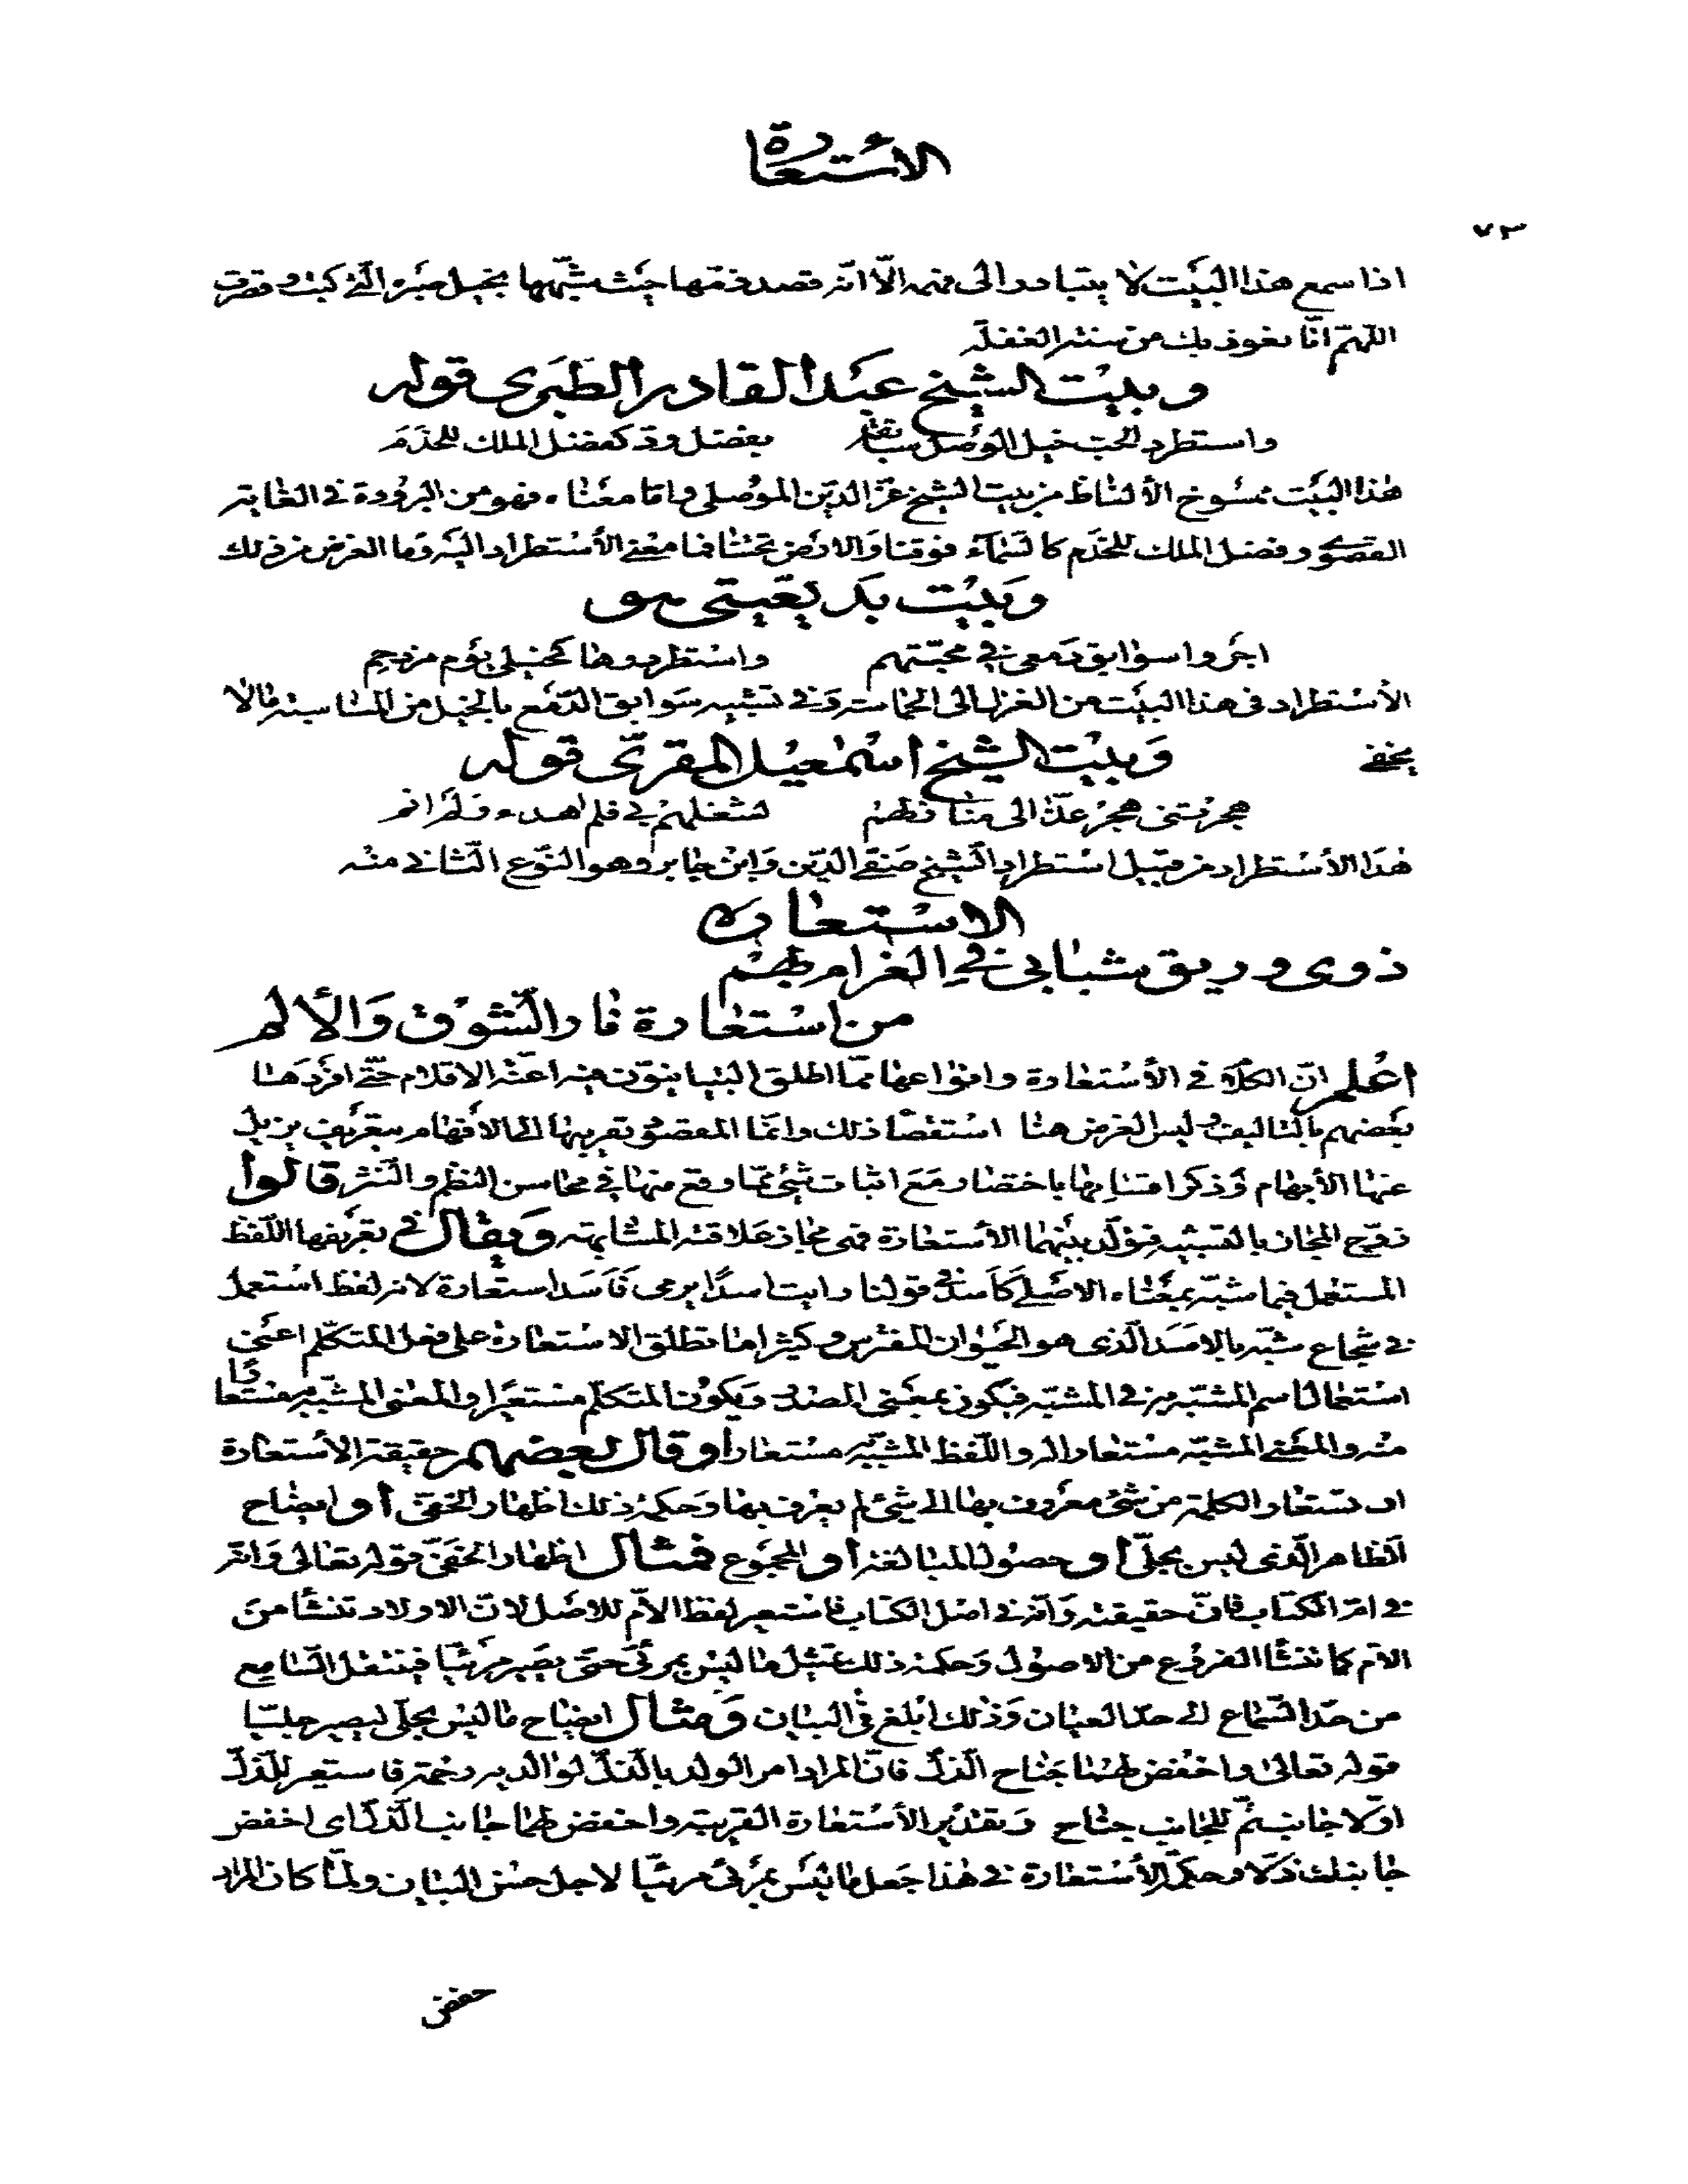 الاستعارة
٧٣
اذا سمع هذا البيت لا يتبادر الى فهمه الّا انّه قصد ذمّها حيث شبّهها بخيل صبره الّتي كبت وقصرت
اللّهمّ انّا نعوذ بك من سنة الغفلة
وبيت الشيخ عبد القادر الطبرى قوله
واستطرد الحب خيل الوصل سابقة بفضل ودّ كفضل الملك للخدم
هذا البيت ممسوخ الألفاظ من بيت الشيخ عزّ الدّين الموصلى وامّا معناه فهو من البرودة في الغاية
القصوى وفضل الملك للخدم كالسّماء فوقنا والارض تحتنا فما معنى الأستطراد اليه وما الغرض من ذلك
وبيت بديعيتى هو
اجروا سوابق دمعى في محبّتهم واستطردوها كخيلى يوم مزدحم
الأستطراد في هذا البيت من الغزل الى الحماسة وفي تشبيه سوابق الدّمع بالخيل من المناسبة مالا
يخفى
وبيت الشيخ اسمعيل المقرىّ قوله
لشغلهم بي فلم اهدء ولم انم
هذا الأستطراد من قبيل استطراد الشّيخ صفىّ الدّين وابن جابر وهو النّوع الثّانى منه
الاستعارة
ذوى وريق شبابى في الغرام بهم
من استعارة نار الشّوق والألم
اعلم انّ الكلام في الأستعارة وانواعها ممّا اطلق البيانيّون فيه اعنّة الاقلام حتّى افردها
بعضهم بالتاليف وليس الغرض هنا استقصاء ذلك وانّما المقصود تقريبها الى الافهام بتعريف يزيل
عنها الأبهام وذكر اقسامها باختصار مع اثبات شئ ممّا وقع منها في محاسن النظم والنثر قالوا
زوّج المجاز بالتشبيه فتولّد بينهما الأستعارة فهى مجاز علاقته المشابهة ويقال في تعريفها اللّفظ
المستعمل فيما شبّه بمعناه الاصلى كاسد في قولنا رايت اسدًا يرمى فاسد استعارة لانه لفظ استعمل
في شجاع شبّه بالاسد الّذى هو الحيوان المفترس وكثيرا ما تطلق الاستعارة على فعل المتكلّم اعنى
استعمال اسم المشبّه به في المشبّه فيكون بمعنى المصدر ويكون المتكلّم مستعيرًا والمعنى المشبّه به مستعارًا
منه والمعنى المشبّه مستعارا له واللّفظ المشبّه به مستعارا وقال بعضهم حقيقة الأستعارة
ان تستعار الكلمة من شئ معروف بها الى شئ لم يعرف بها وحكمة ذلك اظهار الخفىّ او ايضاح
الظاهر الّذى ليس بجلىّ او حصول المبالغة او المجموع فمثال اظهار الخفىّ قوله تعالى وانّه
في امّ الكتاب فانّ حقيقته وانّه في اصل الكتاب فاستعير لفظ الأمّ للاصل لانّ الاولاد تنشأ من
الأم كما تنشأ الفروع من الاصول وحكمة ذلك تمثيل ما ليس بمرئى حتى يصير مرئيّا فينتقل السّامع
من حدّ السّماع الى حدّ العيان وذلك ابلغ في البيان ومثال ايضاح ما ليس بجلىّ ليصير جليّا
قوله تعالى واخفض لهما جناح الذّلّ فانّ المراد امر الولد بالذّلّ لوالديه رحمة فاستعير للذّلّ
اوّلا جانب ثمّ للجانب جناح وتقدير الأستعارة القريبة واخفض لهما جانب الذّلّ اى اخفض
جانبك ذلّا وحكمة الأستعارة في هذا جعل ما ليس بمرئى مرئيّا لاجل حسن البيان ولمّا كان المراد
خفض